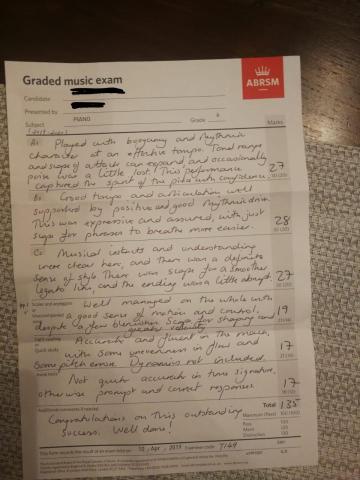 Graded music exam
ABRSM
Candidate
Presented by
PIANO
Subject
Grade
Marks
A: Played with buoyancy and rhythmic
character at an effective tempo. Tonal range
and scope of attack can expand, and occasionally
poise was a little lost! This performance
captured the spirit of the piece with confidence.
27
B: Good tempo and articulation well
supported by positive and good rhythmic drive.
This was expressive and assured, with just
scope for phrases to breathe more easier.
28
C: Musical instincts and understanding
were clear here, and there was a definite
sense of style. There was scope for a smoother
legato line, and the ending was a little abrupt.
27
Scales and arpeggios
Well managed on the whole with
a good sense of motion and control,
despite a few blemishes. Scope for shaping and
greater velocity
19
Accurate and fluent in the main,
Quick study
with some unevenness in flow and
Some pitch error. Dynamics not included.
17
Not quite accurate in time signature,
otherwise prompt and correct responses.
17
Additional comments (if needed)
Total 135
Congratulations on this outstanding
success. Well done!
Maximum (Pass) 150 (100)
Pass 100
Merit 120
Distinction 130
10, Apr, 2019